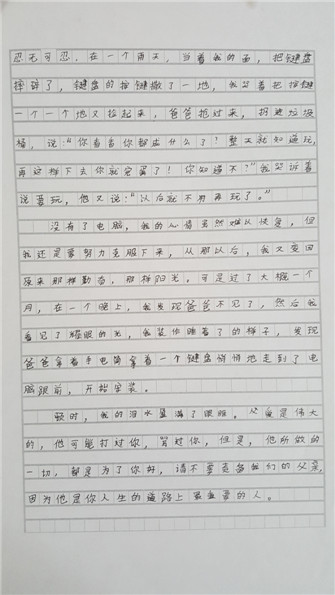 忍无可忍，在一个雨天，当着我的面，把键盘
摔碎了，键盘的按键撒了一地，我哭着把按键
一个一个地又捡起来，爸爸抢过来，扔进垃圾
桶，说：“你看看你都成什么了！整天就知道玩，
再这样下去你就完蛋了！你知道不？”我哭诉着
说要玩，他又说：“以后就不用再玩了。”
没有了电脑，我的心情虽然难以恢复，但
我还是要努力克服下来，从那以后，我又变回
原来那样勤奋，那样阳光。可是过了大概一个
月，在一个晚上，我发现爸爸不见了，然后我
看见了耀眼的光，我装作睡着了的样子，发现
爸爸拿着手电筒拿着一个键盘悄悄地走到了电
脑跟前，开始安装。
顿时，我的泪水显满了眼眶。父爱是伟大
的，他可能打过你，骂过你，但是，他所做的
一切，都是为了你好，请不要责备我们的父亲，
因为他是你人生的道路上最重要的人。